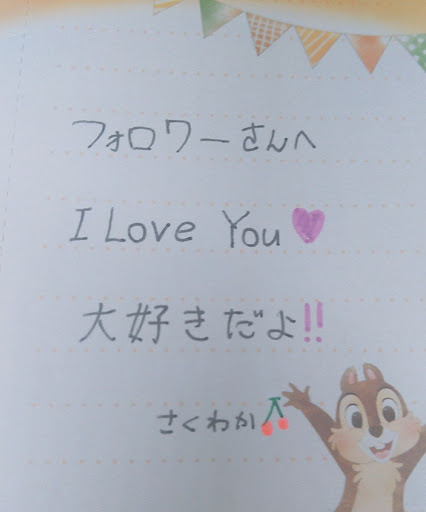 フォロワーさんへ
I Love You♥
大好きだよ!!
さくわか🍒